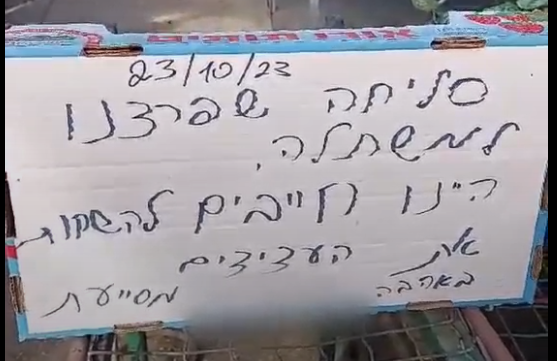 23/10/23
סליחה שפרצנו
למשתלה.
היינו חייבים להשקות
את העציצים
באהבה מסייעת